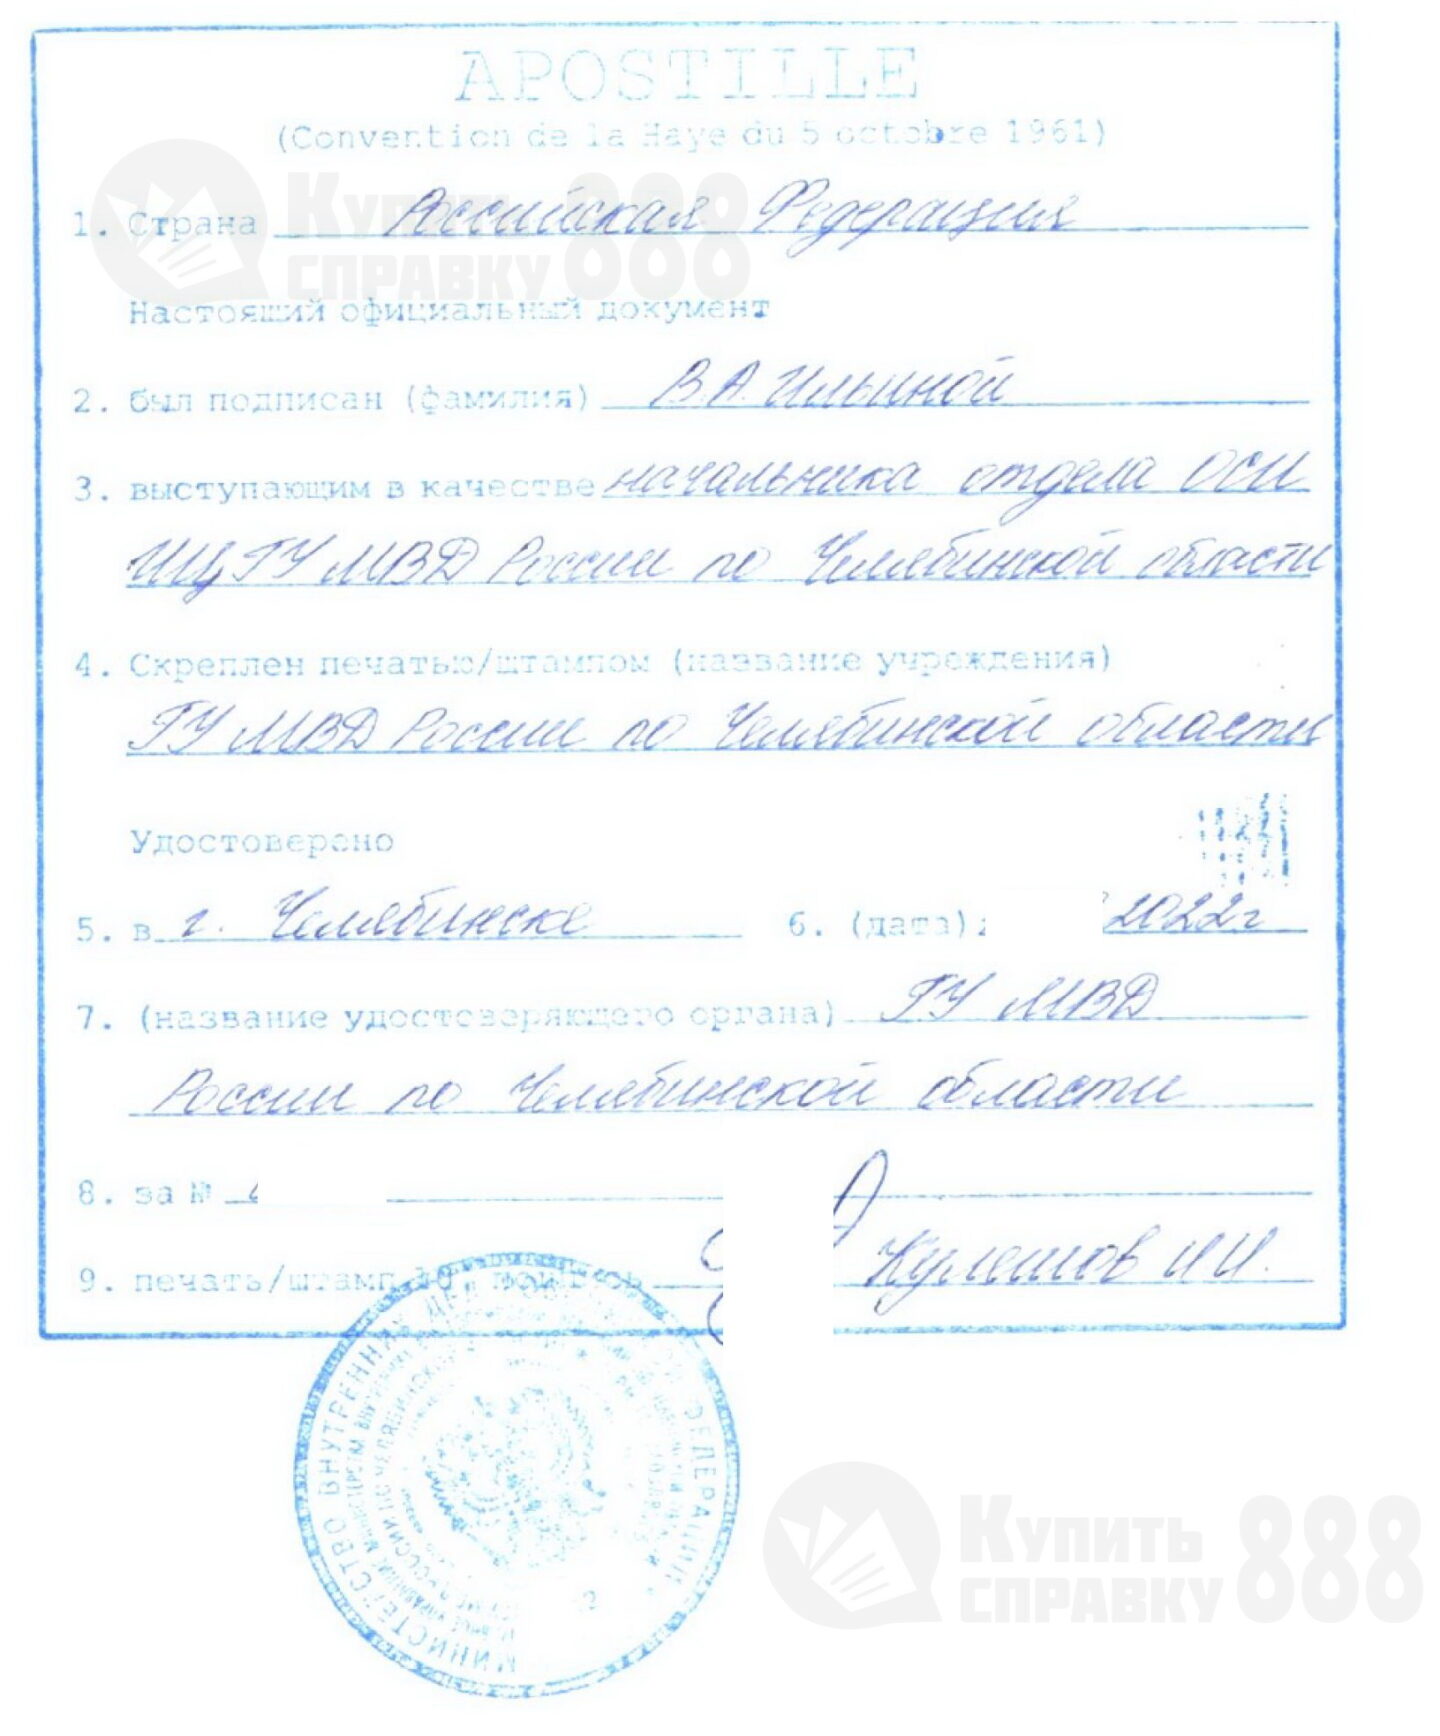 APOSTILLE
(Convention de la Haye du 5 octobre 1961)
1. Страна Российская Федерация
Купить 888
СПРАВКУ
Настоящий официальный документ
2. был подписан (фамилия) В.А. Ильиной
3. выступающим в качестве начальника отдела ОСИ
ИЦ ГУ МВД России по Челябинской области
4. Скреплен печатью/штампом (название учреждения)
ГУ МВД России по Челябинской области
Удостоверено
5. в г. Челябинске 6. (дата) 2022г
7. (название удостоверяющего органа) ГУ МВД
России по Челябинской области
8. за №
9. печать/штамп 10. подпись Кулешов И.И.
МИНИСТЕРСТВО ВНУТРЕННИХ ДЕЛ РОССИЙСКОЙ ФЕДЕРАЦИИ
Купить 888
СПРАВКУ